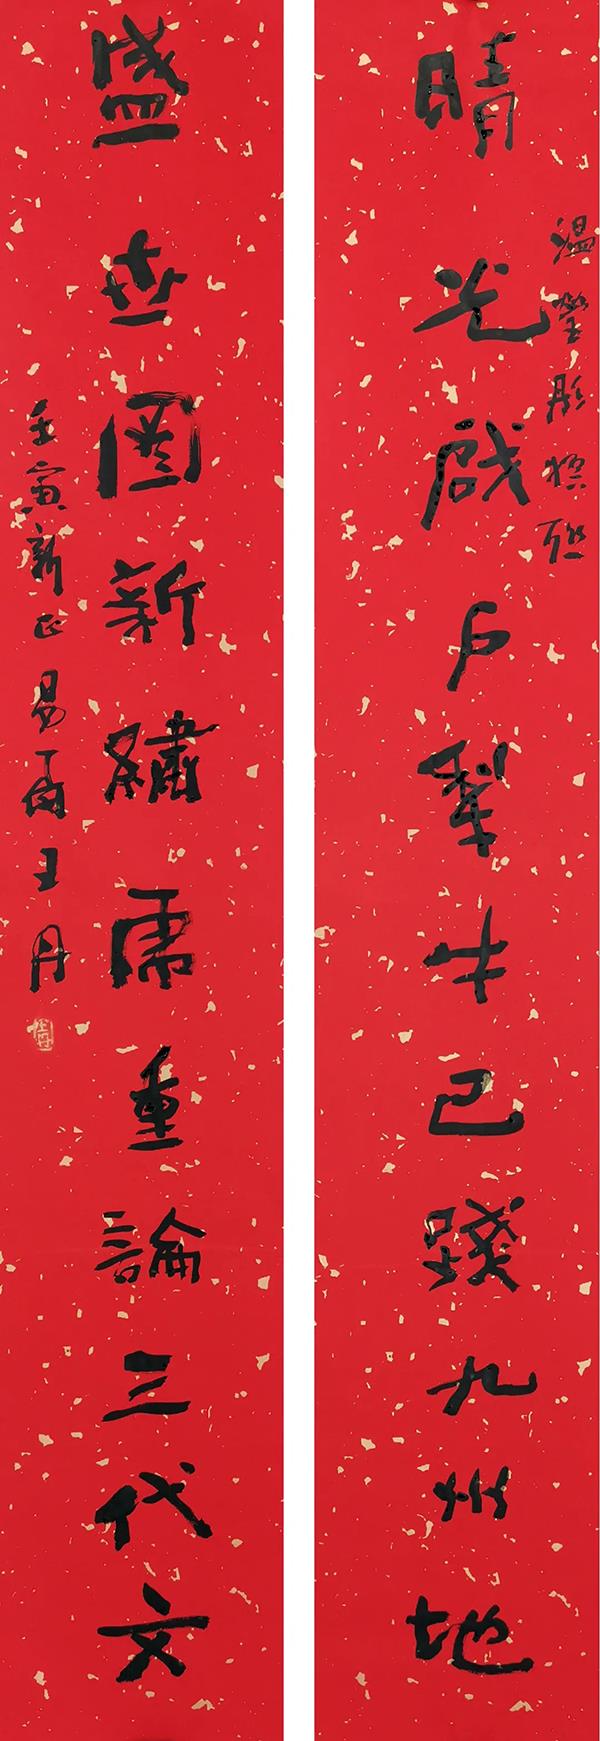 溫瑩彤撰聯
晴光啟戶犂牛已踐九州地
盛世圖新繡虎重論三代文
壬寅新正易 王丹